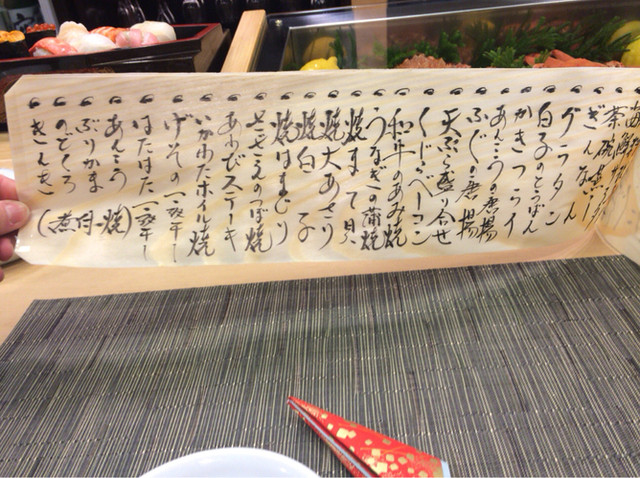 茶碗蒸し
ぎんなん
グラタン
白子のとうばん
かきフライ
あんこうの唐揚
ふぐの唐揚
天ぷら盛り合せ
くじらベーコン
和牛のあみ焼
うなぎの蒲焼
焼まて貝
焼大あさり
焼白子
焼はまぐり
さざえのつぼ焼
あわびステーキ
いかわたホイル焼
げその一夜干し
はたはた一夜干し
あんこう
ぶりかま
のどくろ
きんき
(煮付・焼)